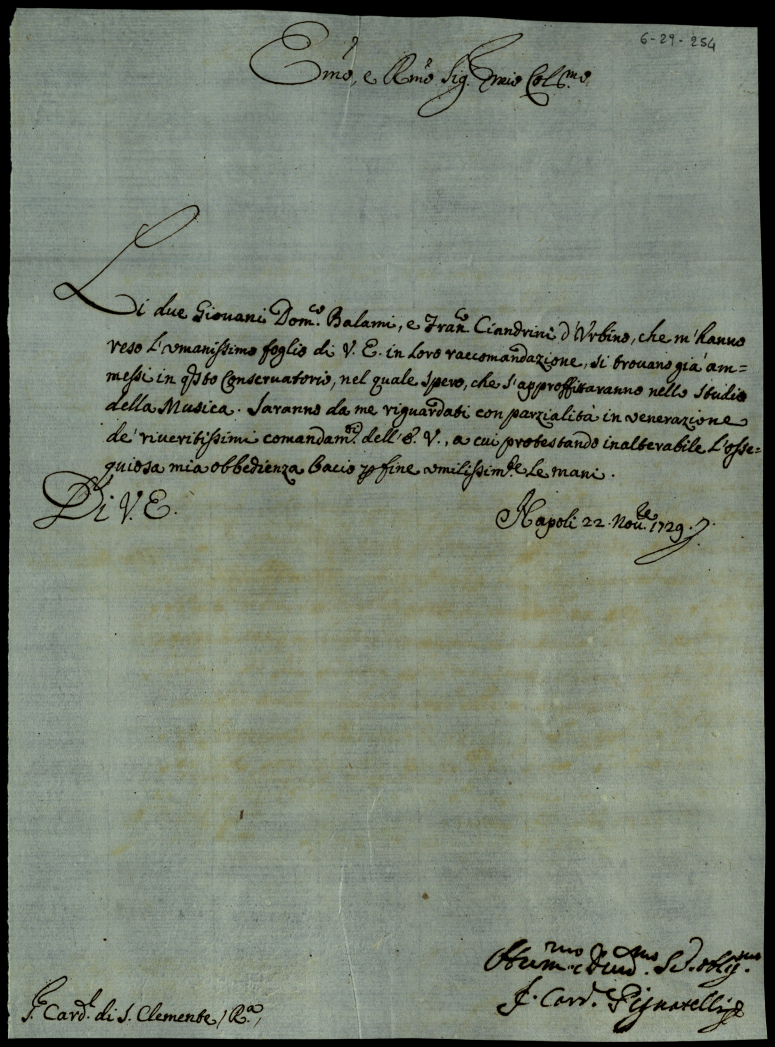 6-29-254
Em̃o, e Rm̃o Sig. mio Col.mo
Li due Giovani Dom.co Balami, e Fran.co Ciandrini d'Urbino, che m'hanno
reso l'umanissimo foglio di V. E. in loro raccomandazione, si trovano già am=
messi in q̃sto Conservatorio, nel quale spero, che s'approffitaranno nello studio
della Musica. Saranno da me riguardati con parzialità in venerazione
de' riveritissimi comandam.ti dell'E. V., a cui protestando inalterabile l'osse=
quiosa mia obbedienza bacio p fine umilissim.te le mani.
Di V. E.
Napoli 22. Nov.re 1729.
Hum.mo e Div.mo S.r oblig.mo
F. Card. Pignatelli
S. Card.l di S. Clemente, R.a,